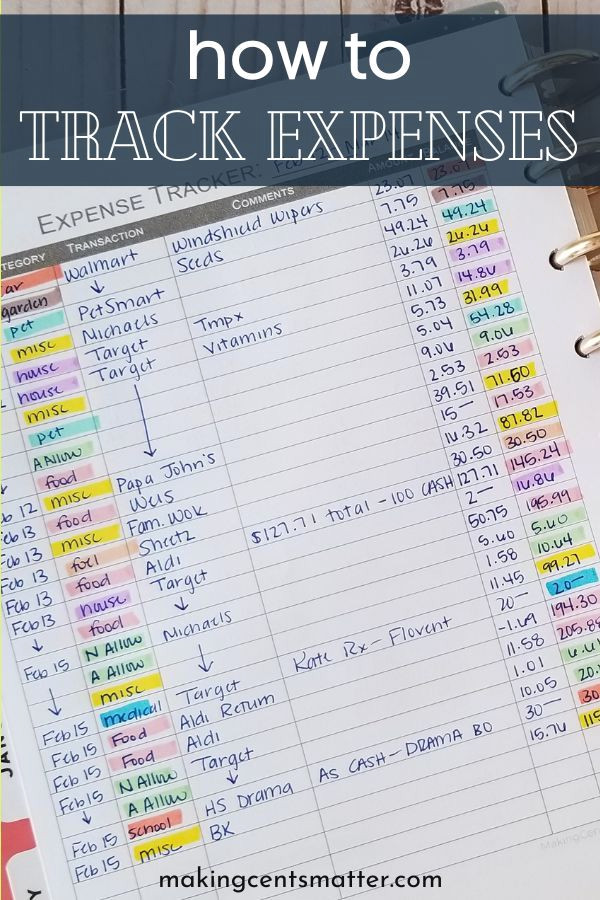 how to
TRACK EXPENSES
EXPENSE TRACKER:
TEGORY TRANSACTION COMMENTS
ar Walmart Windshield Wipers 23.07 23.07
garden ↓ Seeds 7.75 7.75
pet PetSmart 49.24 49.24
misc Michaels 26.26 26.26
house Target Tmpx 3.79 3.79
house Target Vitamins 11.07 14.86
misc 5.73 31.99
pet 5.04 54.28
A Allow 9.06 9.06
food ↓ 2.53 2.53
b 12 misc Papa John's 39.51 71.50
Feb 13 food Weis 15— 17.53
Feb 13 misc Fam. Wok 16.32 87.82
Feb 13 fuel Sheetz 30.50 30.50
Feb 13 food Aldi $127.71 total - 100 CASH 127.71 145.24
Feb 13 house Target 2— 16.86
↓ food ↓ 50.75 195.99
N Allow 5.60 5.60
A Allow 1.58 10.64
Feb 15 misc Michaels 11.45 99.27
↓ medical ↓ Kate Rx - Flovent 20— 20—
Feb 15 Food Aldi Return -1.69 194.30
Feb 15 Food Aldi 11.58 205.88
Feb 15 N Allow Target 1.01
↓ A Allow ↓ 10.05
Feb 15 School HS Drama AS CASH - DRAMA BO 30—
Feb 15 misc BK 15.76
makingcentsmatter.com